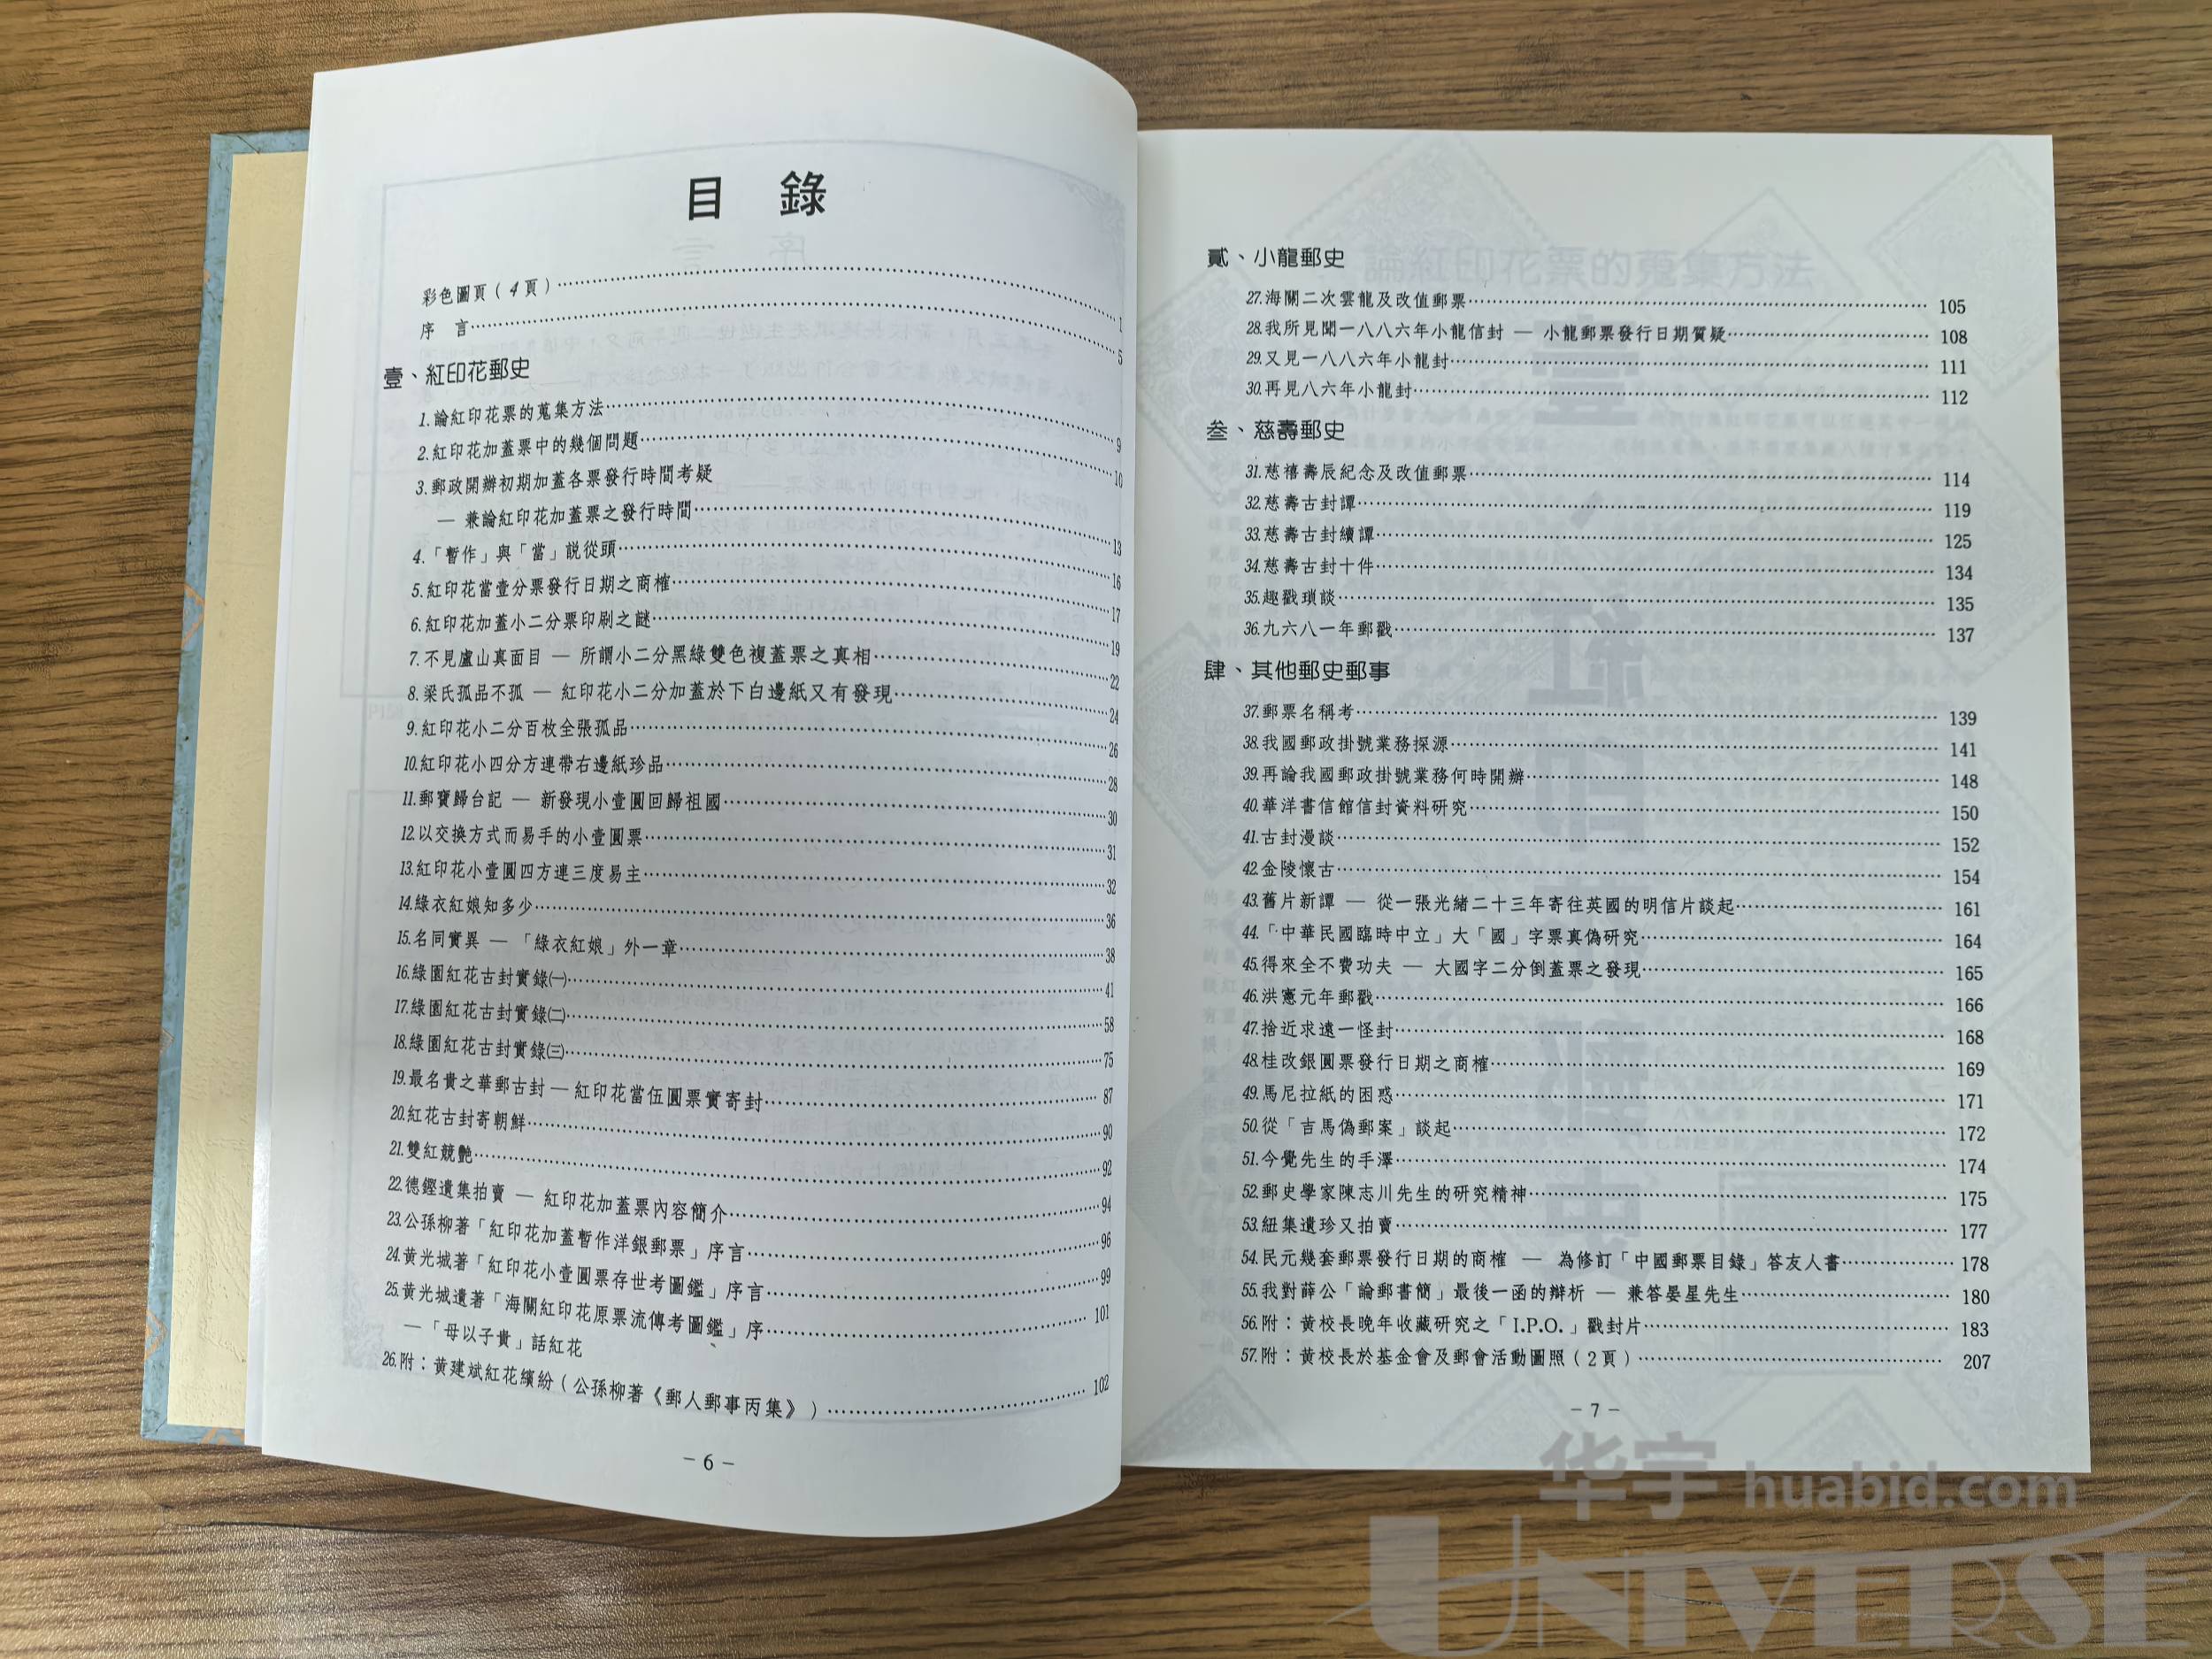 目 錄
彩色圖頁(4頁)……1
序 言……5
壹、紅印花郵史
1.論紅印花票的蒐集方法……9
2.紅印花加蓋票中的幾個問題……10
3.郵政開辦初期加蓋各票發行時間考疑
— 兼論紅印花加蓋票之發行時間……13
4.「暫作」與「當」説從頭……16
5.紅印花當壹分票發行日期之商榷……17
6.紅印花加蓋小二分票印刷之謎……19
7.不見盧山真面目 — 所謂小二分黑綠雙色複蓋票之真相……22
8.梁氏孤品不孤 — 紅印花小二分加蓋於下白邊紙又有發現……24
9.紅印花小二分百枚全張孤品……26
10.紅印花小四分方連帶右邊紙珍品……28
11.郵寶歸台記 — 新發現小壹圓回歸祖國……30
12.以交換方式而易手的小壹圓票……31
13.紅印花小壹圓四方連三度易主……32
14.綠衣紅娘知多少……36
15.名同實異 — 「綠衣紅娘」外一章……38
16.綠園紅花古封實錄㈠……41
17.綠園紅花古封實錄㈡……58
18.綠園紅花古封實錄㈢……75
19.最名貴之華郵古封 — 紅印花當伍圓票實寄封……87
20.紅花古封寄朝鮮……90
21.雙紅競艷……92
22.德鏗遺集拍賣 — 紅印花加蓋票內容簡介……94
23.公孫柳著「紅印花加蓋暫作洋銀郵票」序言……96
24.黃光城著「紅印花小壹圓票存世考圖鑑」序言……99
25.黃光城遺著「海關紅印花原票流傳考圖鑑」序……101
—「母以子貴」話紅花
26.附：黃建斌紅花繽紛(公孫柳著《郵人郵事丙集》)……102
－6－
貳、小龍郵史
27.海關二次雲龍及改值郵票……105
28.我所見聞一八八六年小龍信封 — 小龍郵票發行日期質疑……108
29.又見一八八六年小龍封……111
30.再見八六年小龍封……112
叁、慈壽郵史
31.慈禧壽辰紀念及改值郵票……114
32.慈壽古封譚……119
33.慈壽古封續譚……125
34.慈壽古封十件……134
35.趣戳瑣談……135
36.九六八一年郵戳……137
肆、其他郵史郵事
37.郵票名稱考……139
38.我國郵政掛號業務探源……141
39.再論我國郵政掛號業務何時開辦……148
40.華洋書信館信封資料研究……150
41.古封漫談……152
42.金陵懷古……154
43.舊片新譚 — 從一張光緒二十三年寄往英國的明信片談起……161
44.「中華民國臨時中立」大「國」字票真偽研究……164
45.得來全不費功夫 — 大國字二分倒蓋票之發現……165
46.洪憲元年郵戳……166
47.捨近求遠一怪封……168
48.桂改銀圓票發行日期之商榷……169
49.馬尼拉紙的困惑……171
50.從「吉馬偽郵案」談起……172
51.今覺先生的手澤……174
52.郵史學家陳志川先生的研究精神……175
53.紐集遺珍又拍賣……177
54.民元幾套郵票發行日期的商榷 — 為修訂「中國郵票目錄」答友人書……178
55.我對薛公「論郵書簡」最後一函的辯析 — 兼答晏星先生……180
56.附：黃校長晚年收藏研究之「I.P.O.」戳封片……183
57.附：黃校長於基金會及郵會活動圖照(2頁)……207
－7－
华宇 huabid.com
UNIVERSE